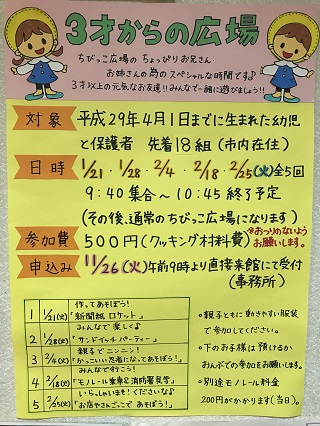 3才からの広場
ちびっこ広場の ちょっぴりお兄さん・
お姉さんの為のスペシャルな時間です♪
3才以上の元気なお友達!!みんなで一緒に遊びましょう!!
対象 平成29年4月1日までに生まれた幼児
と保護者 先着18組(市内在住)
日時 1/21・1/28・2/4・2/18・2/25(火)全5回
9:40集合〜10:45終了予定
(その後、通常のちびっこ広場になります)
参加費 500円(クッキング材料費) ※おつりのないようお願いします。
申込み 11/26(火)午前9時より直接来館にて受付
(事務所)
1 1/21(火) 作ってあそぼう!
「新聞紙ロケット」
2 1/28(火) みんなで楽しく♪
「サンドイッチパーティー」
3 2/4(火) 親子でニンニン!
「かっこいい忍者になってあそぼう!」
4 2/18(火) みんなで行こう!
「モノレール乗車&消防署見学」
5 2/25(火) いらっしゃいませ!くださいな
「お店やさんごっこであそぼう!」
・親子ともに動きやすい服装
で参加してください。
・下のお子様は預けるか
おんぶでの参加をお願いします。
・別途モノレール料金
200円がかかります(当日)。